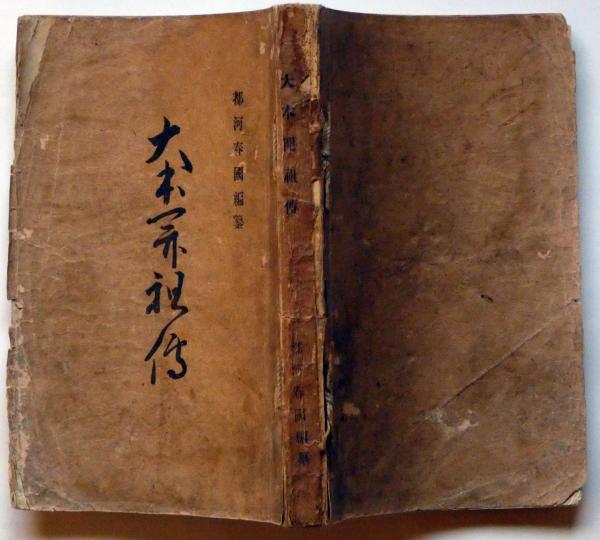 都河春國編纂
大本開祖傳
大本開祖傳
都河春國編纂